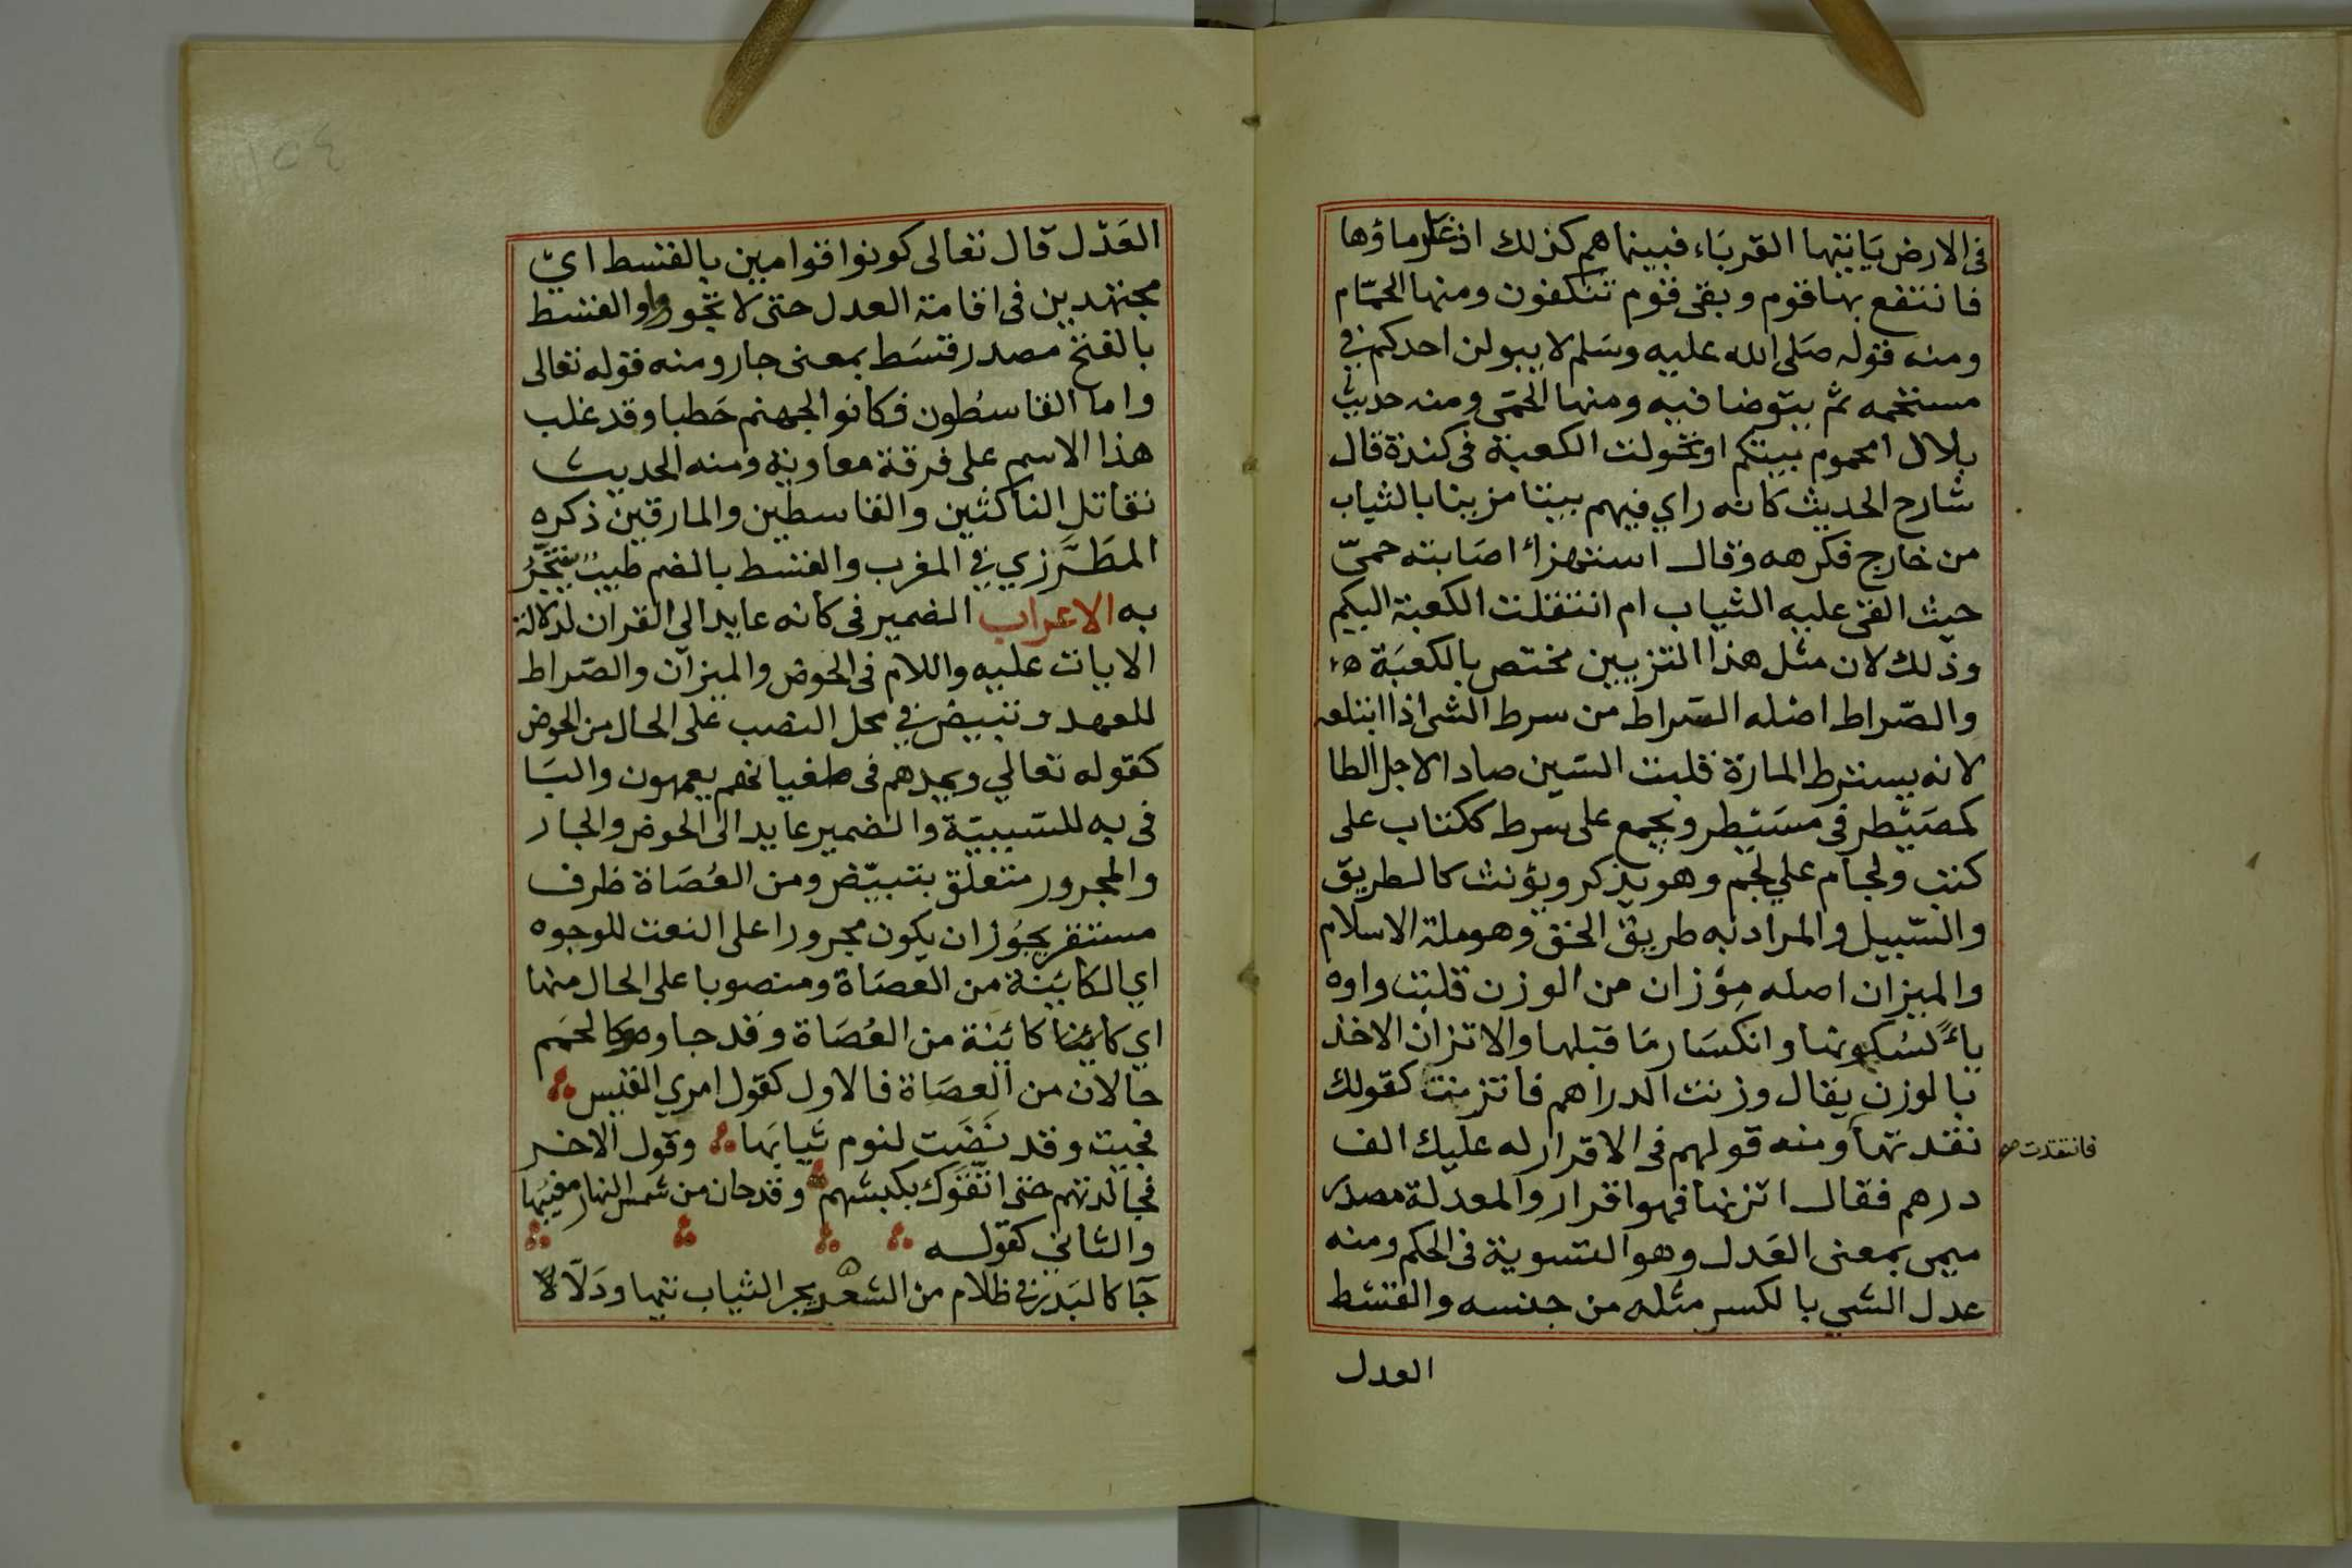 في الارض ياتيها القرباء فبينما هم كذلك اذ غار ماؤها
فانتفع بها قوم وبقي قوم تتكفون ومنها الحمّام
ومنه قوله صلى الله عليه وسلم لا يبولن احدكم في
مستحمه ثم يتوضا فيه ومنها الحمّى ومنه حديث
بلال امحموم بيتكم او تحولت الكعبة في كندة قال
شارح الحديث كانه راي فيهم بيتا مزينا بالثياب
من خارج فكرهه وقال استهزاء اصابته حمىّ
حيث القى عليه الثياب ام انتقلت الكعبة اليكم
وذلك لان مثل هذا التزيين مختص بالكعبَة
والصّراط اصله السّراط من سرط الشى اذا ابتلعه
لانه يسترط المارة قلبت السّين صادا لاجل الطا
كمصَيْطر في مسَيْطر ويجمع على سرط ككتاب على
كتب ولجام علي لجم وهو يذكر ويؤنث كالطريق
والسّبيل والمراد به طريق الحق وهو ملة الاسلام
والميزان اصله مِوْزان من الوزن قلبت واوه
ياءً لسكونها وانكسَار مَا قبلها والاتزان الاخذ
بالوزن يقال وزنت الدراهم فاتزنت كقولك
نقدتها ومنه قولهم في الاقرار له عليك الف
فانتقدت صح
درهم فقال اتزنها فهو اقرار والمعدلة مصدر
ميمى بمعنى العَدل وهو التسوية في الحكم ومنه
عدل الشي بالكسر مثله من جنسه والقسط
العدل
١٥٤
العَدْل قال تعالى كونوا قوامين بالقسط اي
مجتهدين في اقامة العدل حتى لا تجوروا والقسط
بالفتح مصدر قسَط بمعنى جار ومنه قوله تعالى
واما القاسطون فكانوا لجهنم حَطبا وقد غلب
هذا الاسم على فرقة معاوية ومنه الحديث
نقاتل الناكثين والقاسطين والمارقين ذكره
المطَرّزي في المغرب والقسط بالضم طيب يتبخّرُ
به الاعراب الضمير في كانه عايد الي القران لدلالة
الايات عليه واللام في الحوض والميزان والصّراط
للعهد وتبيض في محل النصب على الحال من الحوض
كقوله تعالي ويمدهم في طغيانهم يعمهون والبَا
في به للسّببيّة والضمير عايد الى الحوض والجار
والمجرور متعلق بتبيّض ومن العُصَاة ظرف
مستقر يجُوز ان يكون مجرورا على النعت للوجوه
اي الكايَنة من العصَاة ومنصوبا على الحال منها
اي كائنا كائنة من العُصَاة وقد جاوه كالحمم
حالان من العصَاة فالاول كقول امري القيس
فجيت وقد نضَت لنوم ثيابَها وقول الاخر
فجالدتهم حتى اتقوك بكبشهم وقد حان من شمس النهار مغيبُها
والثاني كقوله
جآ كالبَدر في ظلام من الشعر يجر الثياب تيها ودَلّالا